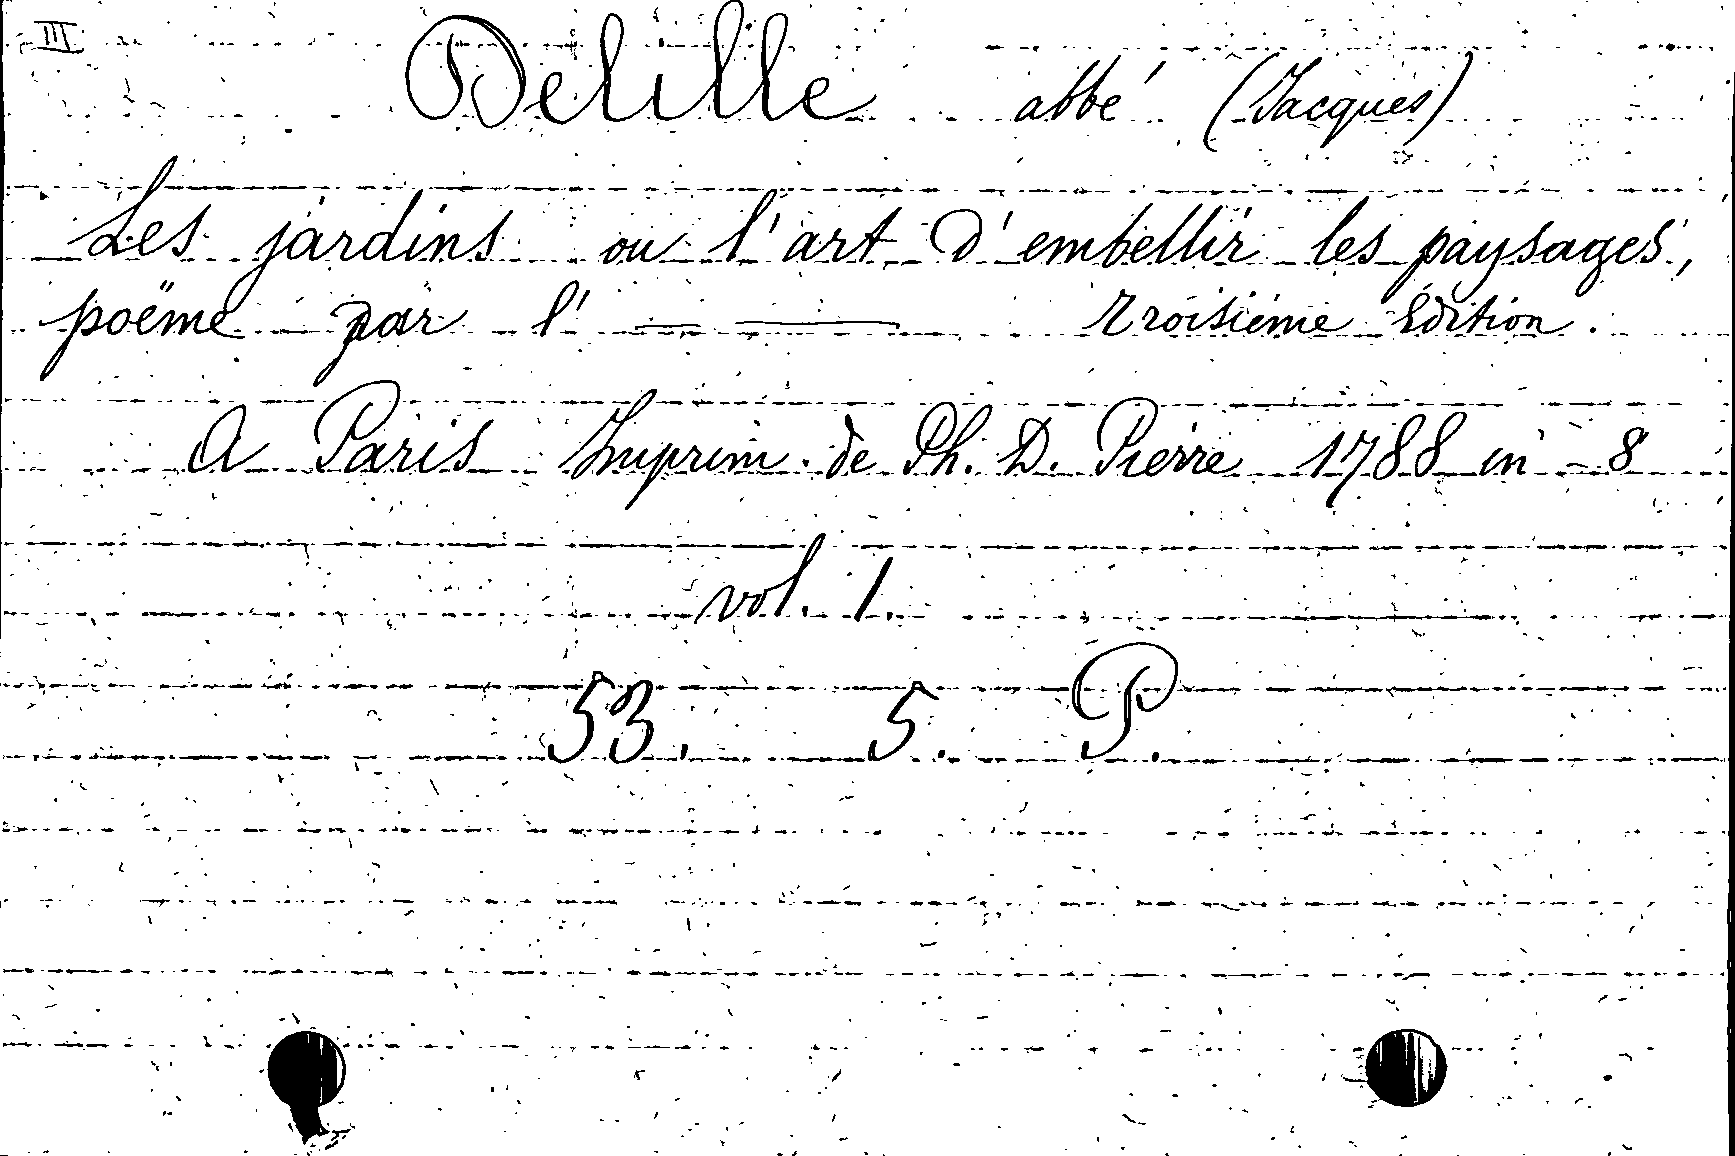 III
Delille abbé (Jacques)
Les jardins ou l'art d'embellir les paysages,
poëme par l' — — troisième édition.
A Paris Imprim. de Ph. D. Pierre 1788 in - 8
vol. 1.
53. 5. P.